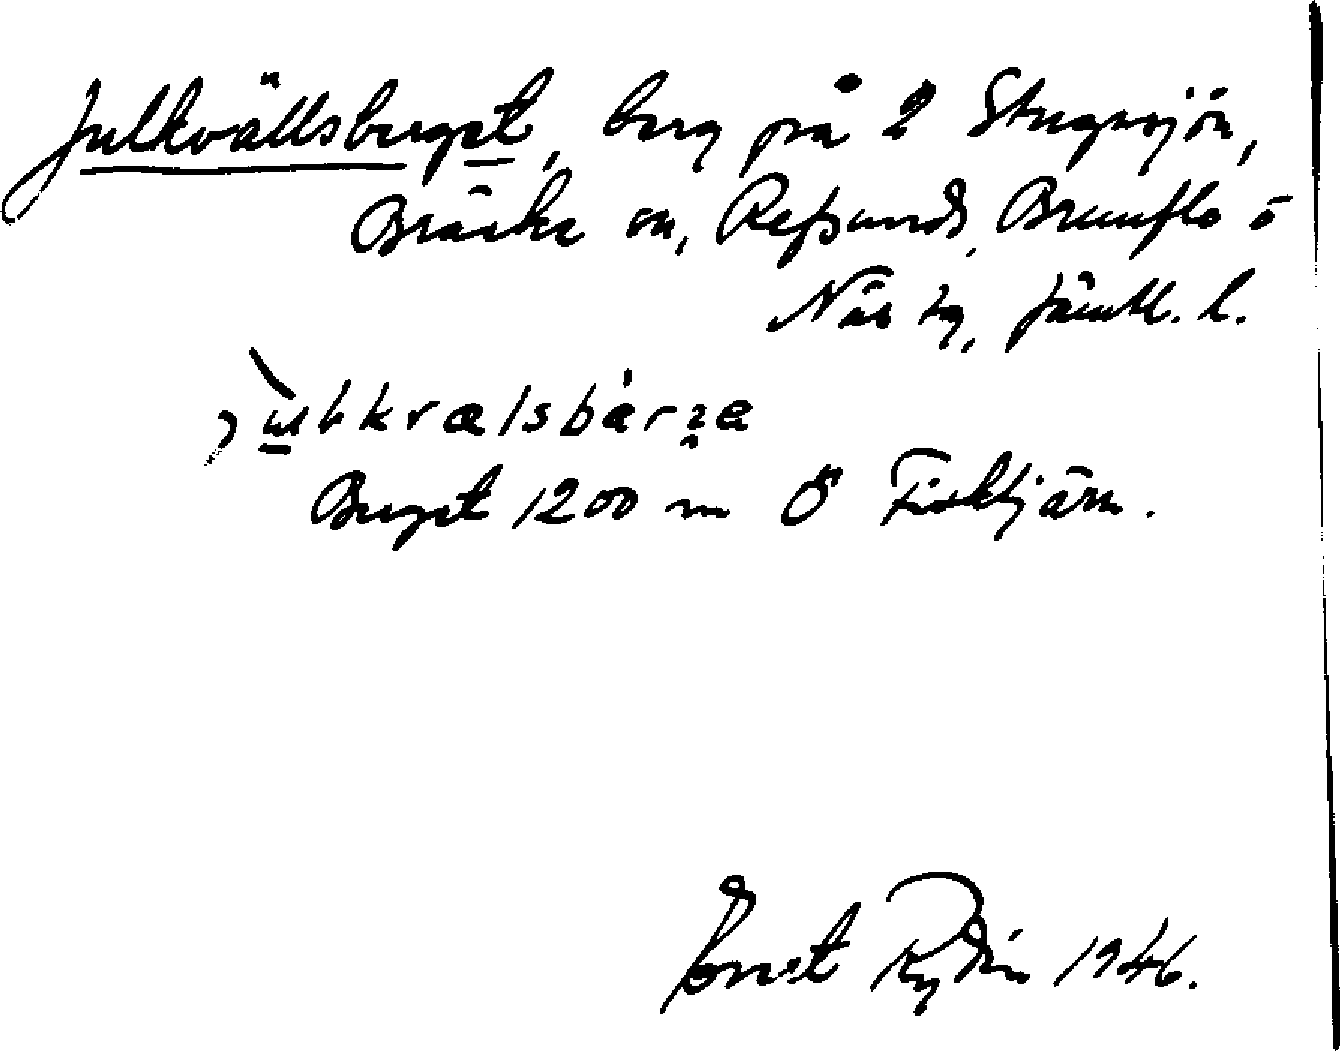 Julkvällsberget, berg på 2 Stugusjön,
Bräcke sn, Refsunds, Brunflo o
Näs tg, Jämtl. l.
Berget 1200 m Ö Fisktjärn.
Ernst Rydin 1946.